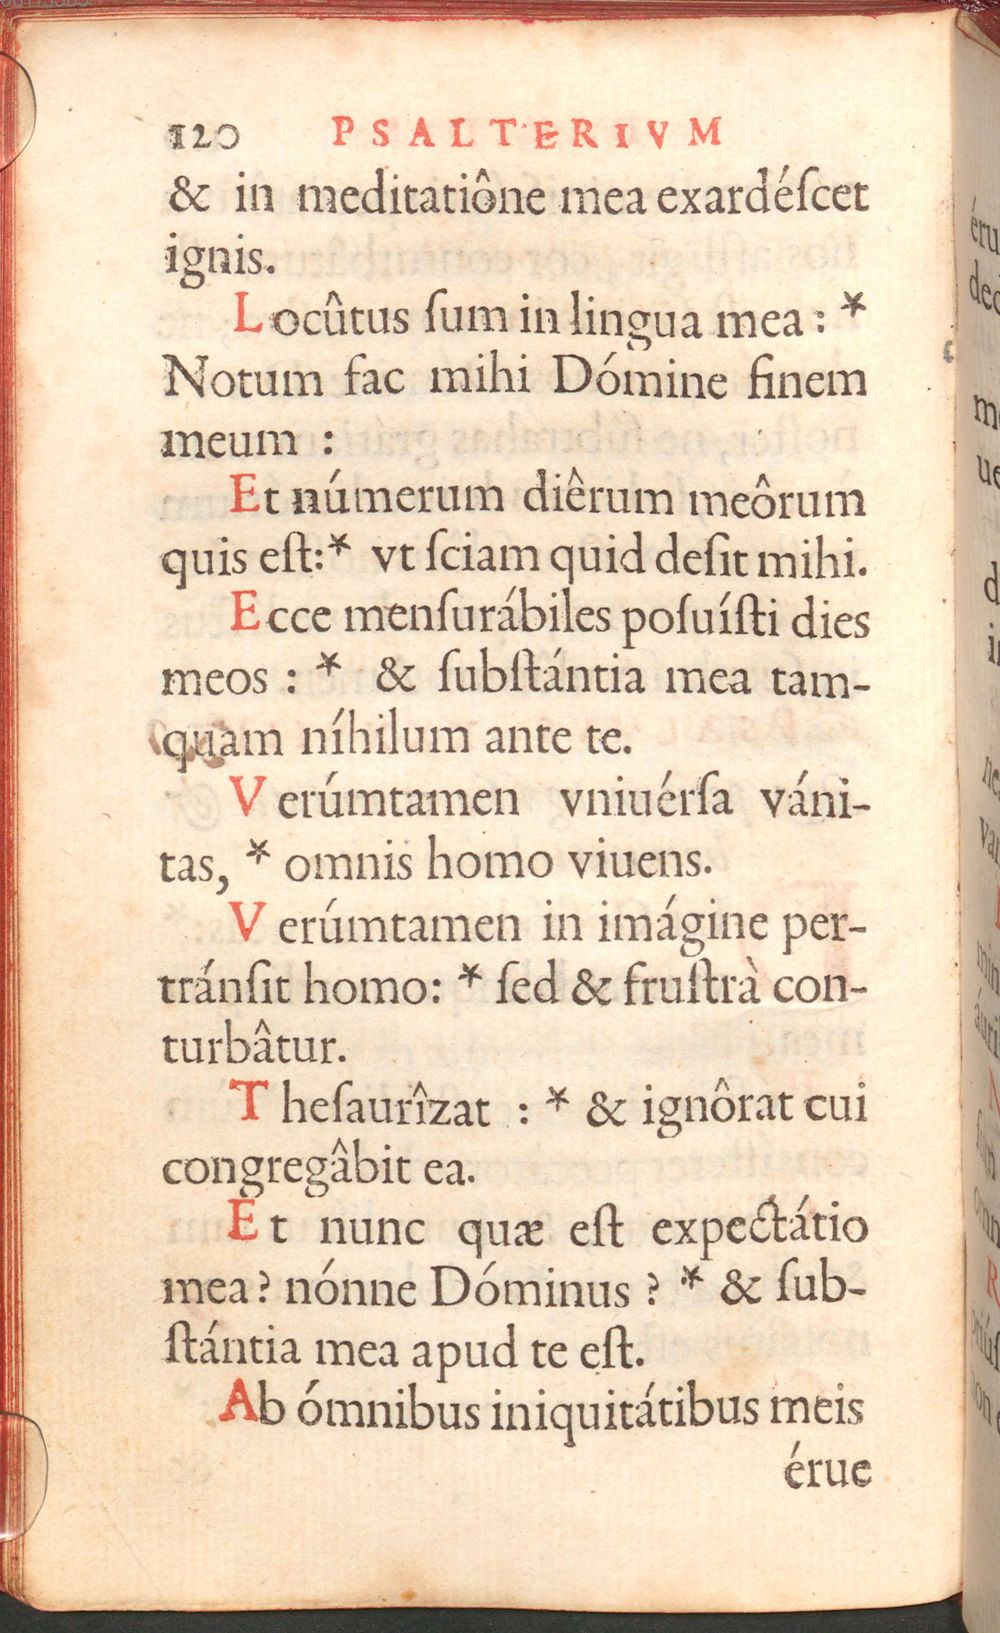 120 PSALTERIVM
& in meditatiône mea exardéſcet
ignis.
Locûtus ſum in lingua mea : *
Notum fac mihi Dómine finem
meum :
Et númerum diêrum meôrum
quis eſt:* vt ſciam quid deſit mihi.
Ecce menſurábiles poſuíſti dies
meos : * & ſubſtántia mea tam-
quam níhilum ante te.
Verúmtamen vniuérſa váni-
tas, * omnis homo viuens.
Verúmtamen in imágine per-
tránſit homo: * ſed & fruſtrà con-
turbâtur.
Theſaurîzat : * & ignôrat cui
congregâbit ea.
Et nunc quæ eſt expectátio
mea? nónne Dóminus ? * & ſub-
ſtántia mea apud te eſt.
Ab ómnibus iniquitátibus meis
érue